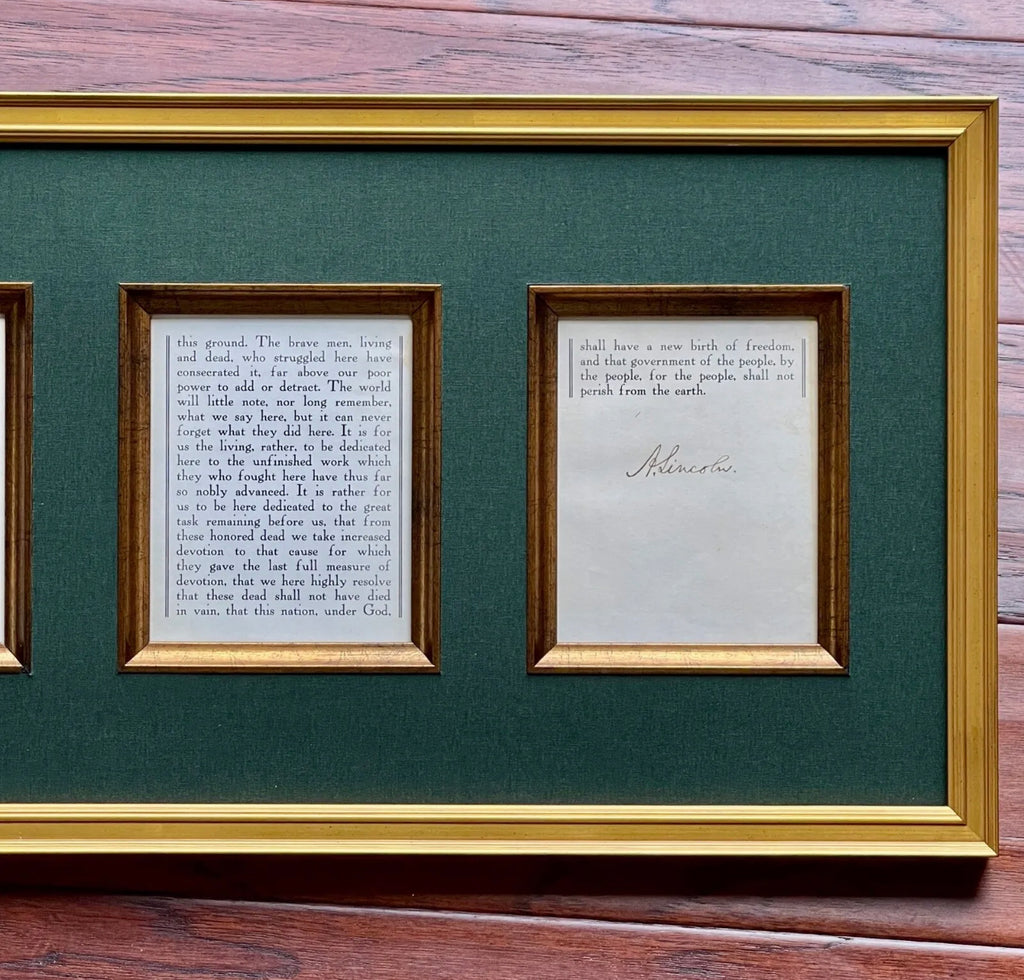 this ground. The brave men, living
and dead, who struggled here have
consecrated it, far above our poor
power to add or detract. The world
will little note, nor long remember,
what we say here, but it can never
forget what they did here. It is for
us the living, rather, to be dedicated
here to the unfinished work which
they who fought here have thus far
so nobly advanced. It is rather for
us to be here dedicated to the great
task remaining before us, that from
these honored dead we take increased
devotion to that cause for which
they gave the last full measure of
devotion, that we here highly resolve
that these dead shall not have died
in vain, that this nation, under God,
shall have a new birth of freedom,
and that government of the people, by
the people, for the people, shall not
perish from the earth.
A. Lincoln.